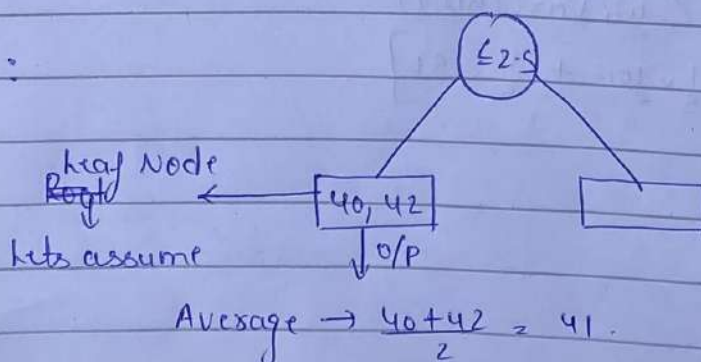 :
≤ 2.5
Leaf Node
40, 42
Lets assume
O/P
Average → 40+42/2 = 41.